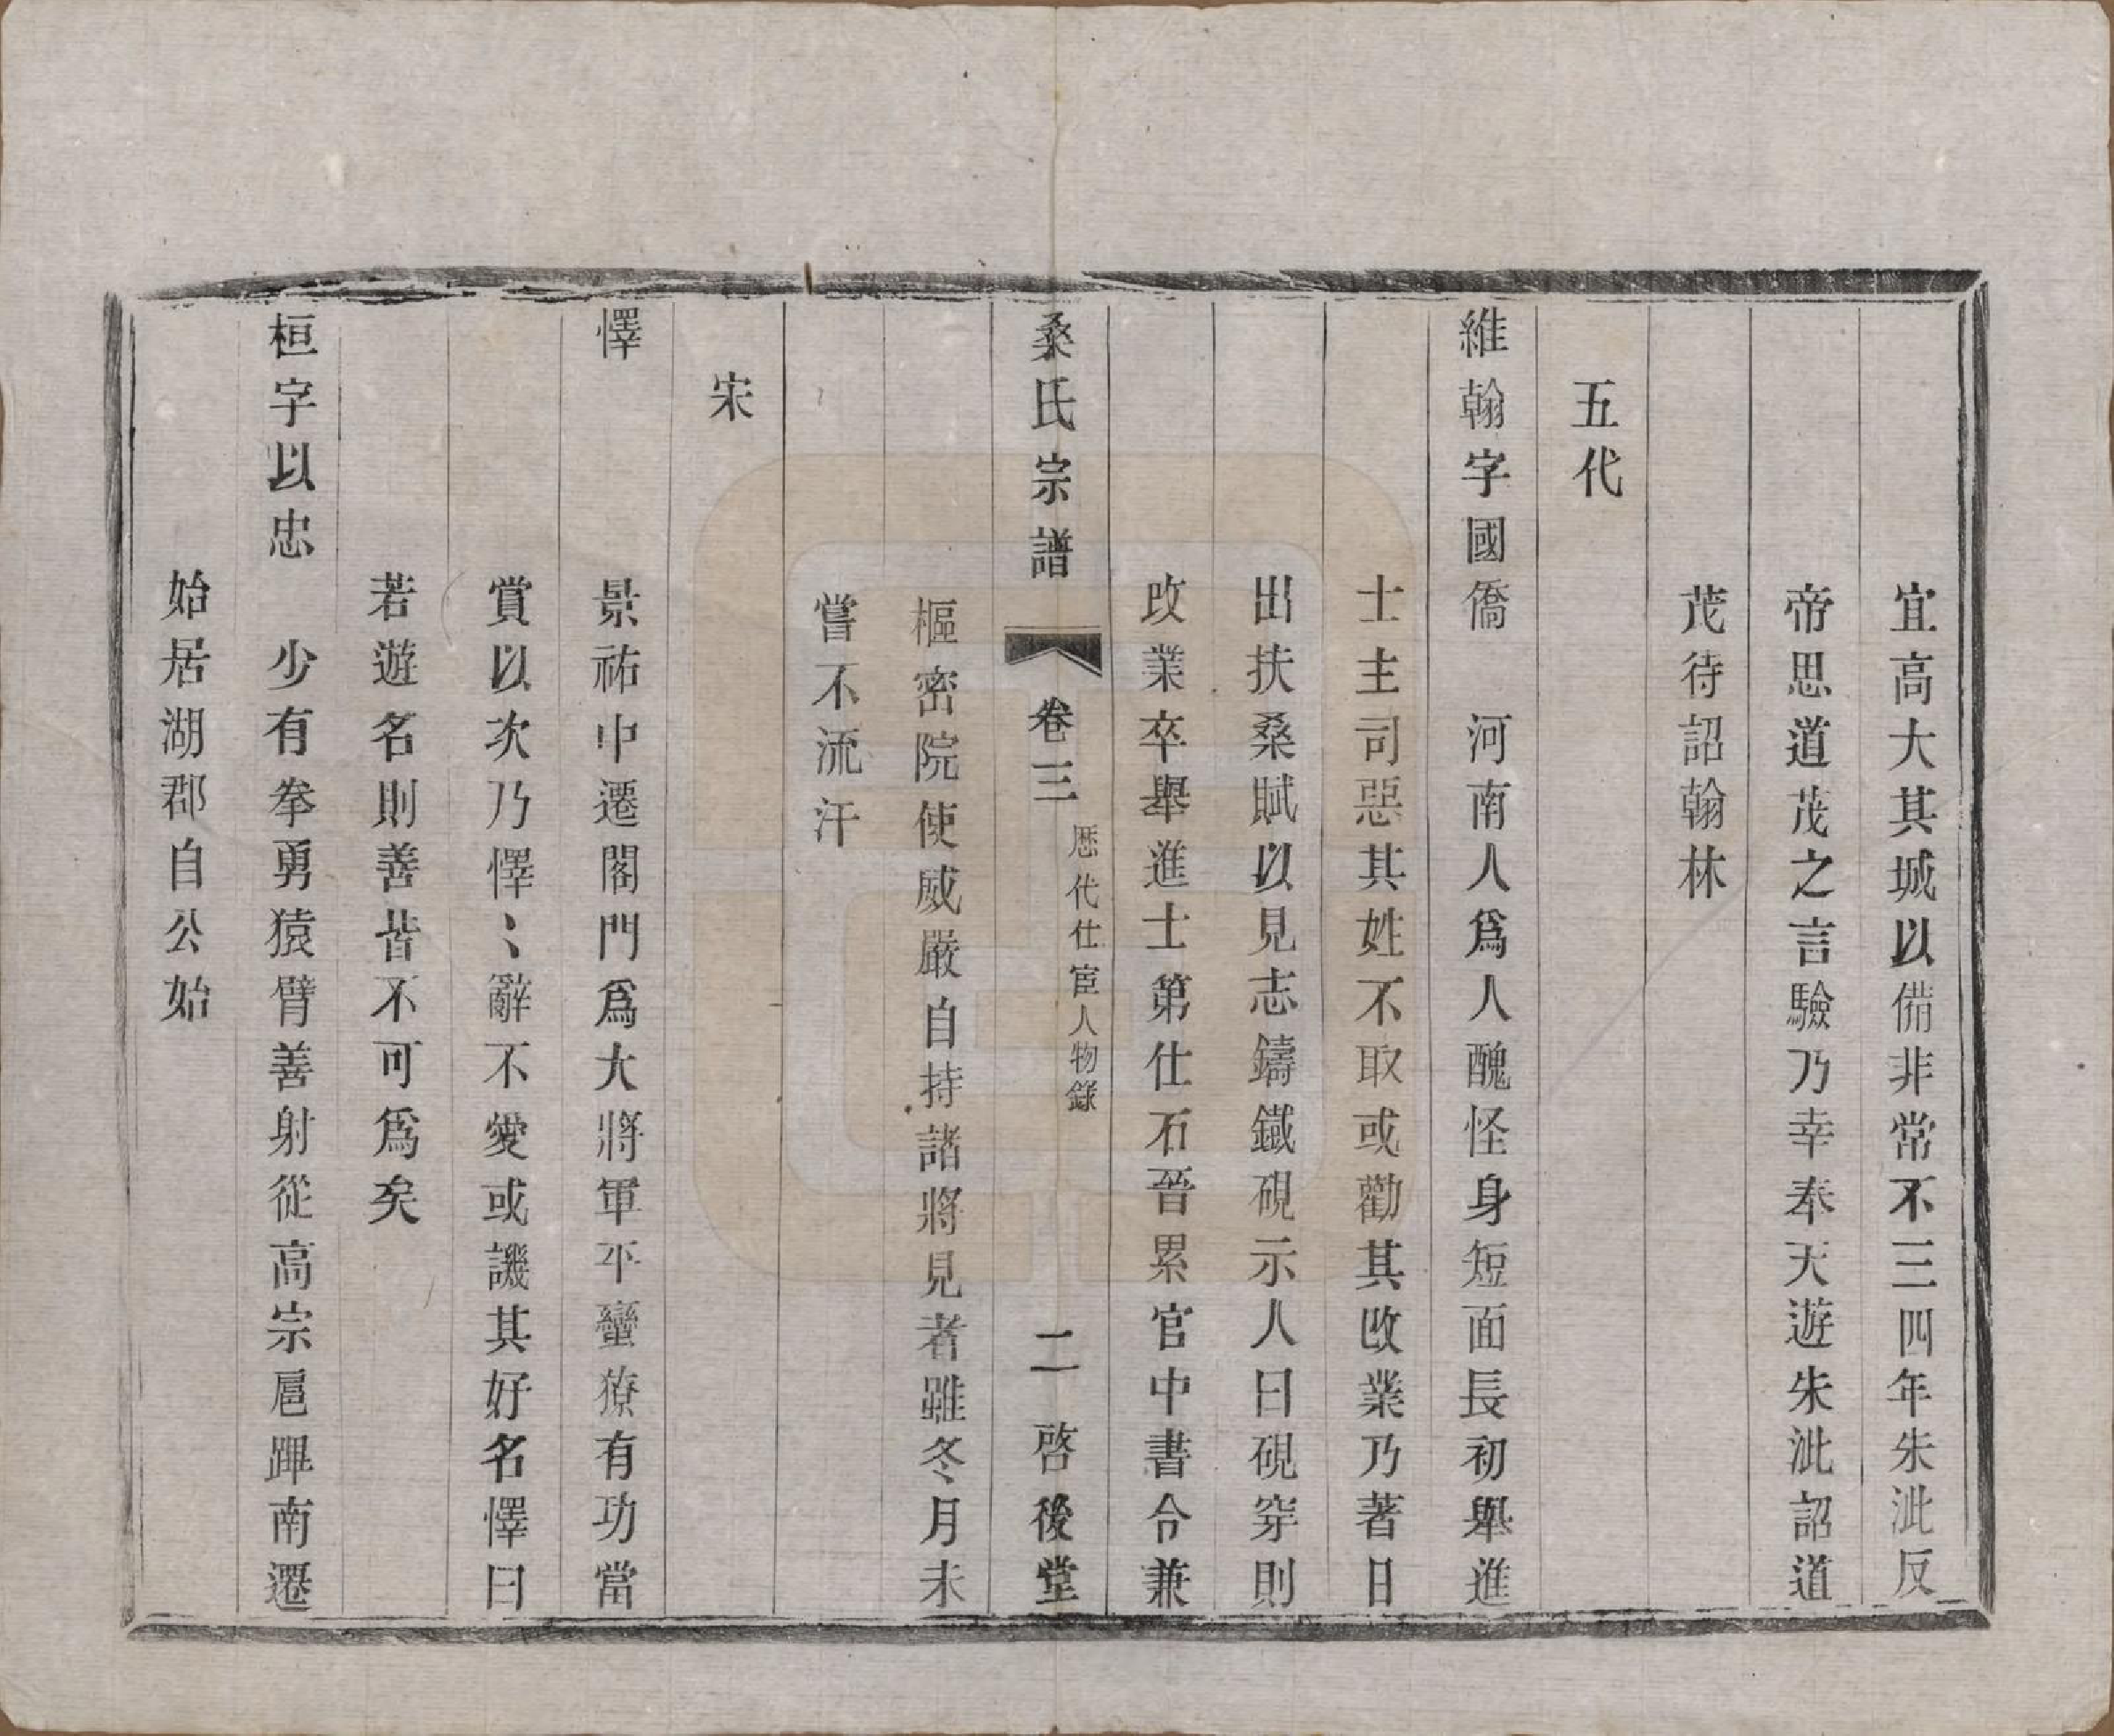 宜高大其城以備非常不三四年朱泚反
帝思道茂之言驗乃幸奉天遊朱泚詔道
茂待詔翰林
五代
維翰字國僑　河南人爲人醜怪身短面長初舉進
士主司惡其姓不取或勸其改業乃著日
出扶桑賦以見志鑄鐵硯示人曰硯穿則
改業卒舉進士第仕石晉累官中書令兼
桑氏宗譜　卷三　歷代仕宦人物錄　二　啓後堂
樞密院使威嚴自持諸將見者雖冬月未
嘗不流汗
宋
懌　景祐中遷閣門爲大將軍平蠻獠有功當
賞以次乃懌〻辭不愛或譏其好名懌曰
若遊名則善皆不可爲矣
桓字以忠　少有拳勇猿臂善射從高宗扈蹕南遷
始居湖郡自公始